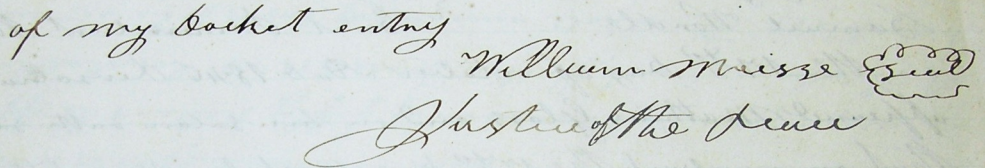 of my docket entry
William Meisze Seal
Justice of the Peace